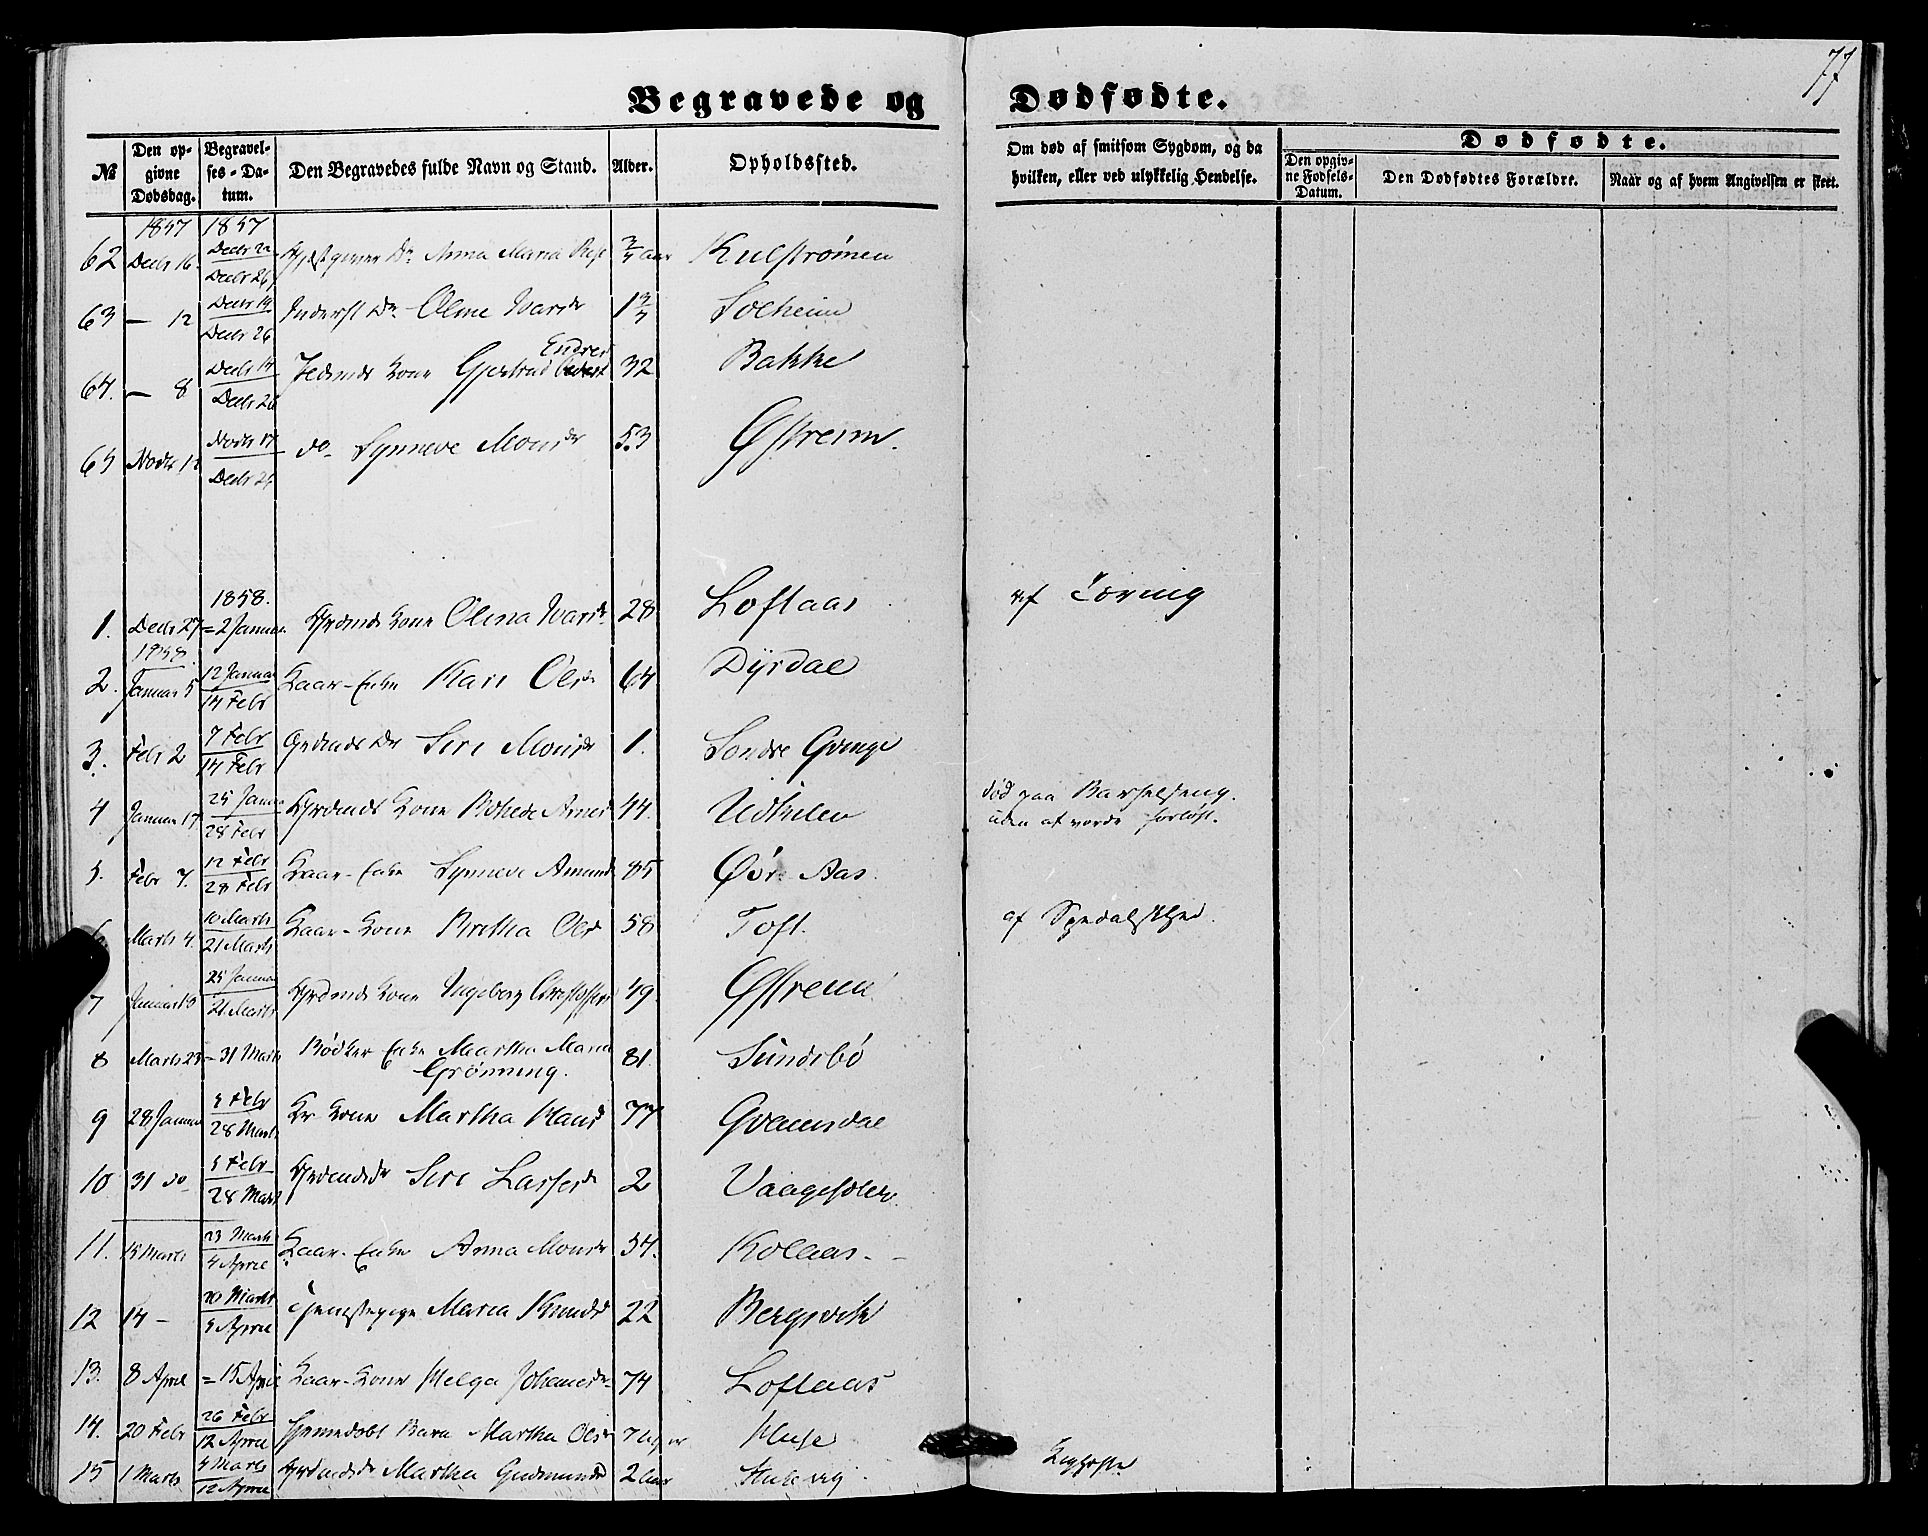 77
Begravede og Dødfødte.
№ Den opgivne Dødsdag. Begravelses-Datum. Den Begravedes fulde Navn og Stand. Alder. Opholdssted. Om død af smitsom Sygdom, og da hvilken, eller ved ulykkelig Hendelse. Dødfødte. Den opgivne Fødsels-Datum. Den Dødfødtes Forældre. Naar og af hvem Angivelsen er skeet.
1857 1857
62 Decbr 16 Decbr 22 Decbr 26 Dr Anna Maria 3/4 Aar Kulstrømen
63 — 12 Decbr 19 Decbr 26 Inderst Dr Oline Ivarsdr 1 3/4 Solheim
64. — 8 Decbr 14 Decbr 26 Kone Gjertrud Endresd 32 Bakke
65 Novbr 12 Novbr 17 Decbr 26 do Synneve Monsdr 53 Østreim.
1858.
1. Decbr 27 = 2 Januar Grdmds Kone Olina Ivarsdr 28 Loftaas af Tæring
1858.
2. Januar 5 12 Januar 14 Febr Kaar-Enke Kari Olsdr 64 Dyrdal
3. Febr 2 7 Febr 14 Febr Grdmds Dr Siri Monsdr 1. Søndre Qvinge
4 Januar 17 25 Janua 28 Febr Grdmds Kone Arnesd 44. Udkilen død paa Barselseng. uden at vorde forløst.
5. Febr 7. 12 Febr 28 Febr Kaar-Enke Synneve Amundsd 85 Øvre Aas.
6 Marts 4. 10 Marts 21 Marts Kaar-Kone Britha Olsdr 58 Toft. af Spedalskhed.
7 Januar 25 Januar 21 Marts Grdmds Kone Ingeborg 49 Østreim
8 Marts 23 - 31 Marts Bødker Enke Martha Maria Grönning. 81. Sundsbö
9 28 Januar 5 Febr 28 Marts Kr Kone Martha Hansd 77 Qvamsdal
10 31 do 5 Febr 28 Marts Grdmdsdr Siri Lassesdr 2 Vaageskolen.
11. 15 Marts 23 Marts 4 April Kaar-Enke Anna Monsdr 54. Kolaas.
12 14 - 20 Marts 5 April Tjenestepige Maria Knudsd 22 Bergsvik
13. 8 April = 15 April Kaar-Kone Helga Johanesdr 74 Loftaas
14. 20 Febr 26 Febr 12 April Hjemmedøbt Barn Martha Olsdr 7 Uger Huse
15 1 Marts 4 Marts 12 April Grdmdsdr Martha Gudmundsd 2 Aar Kighoste